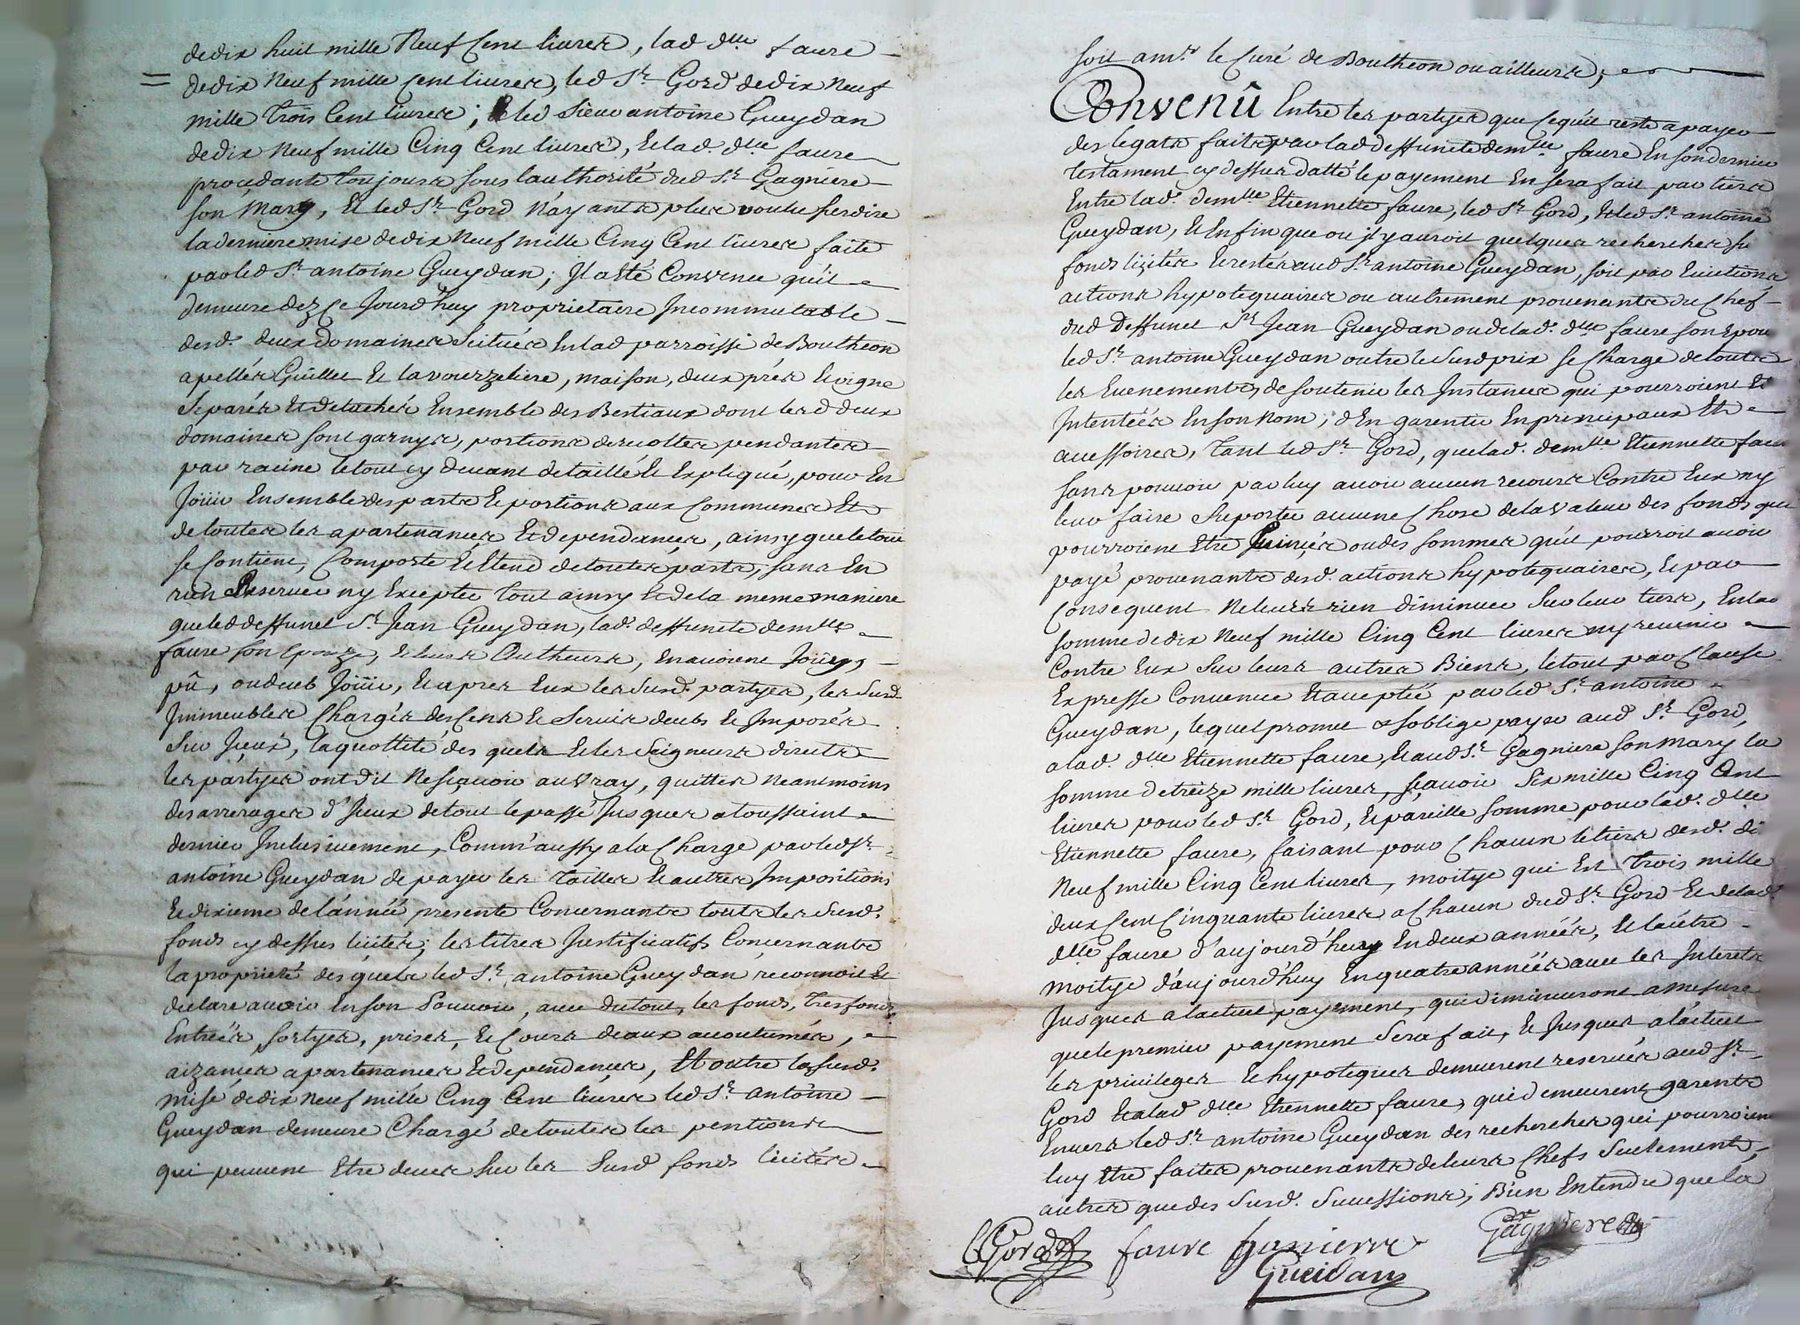 de dix huit mille Neuf Cent livres, lad dlle faure
de dix Neuf mille Cent livres, led Sr Gord de dix Neuf
mille trois Cent livres; & led sieur antoine Gueydan
de dix Neuf mille Cinq Cent livres, Et lad. dlle faure
procedante toujours sous lauthorité dud Sr Gagniere
son Mary, Et led Sr Gord N'ayants plus voulu surdire
la derniere mise de dix Neuf mille Cinq Cent livres faite
par led Sr antoine Gueydan; Il a été Convenu qu'il
demeure dez Ce Jourd'huy proprietaire Incommutable
desd. deux domaines scitués En lad parroisse de Boutheon
apellés Guillet Et la vourzeliere, maison, deux prés & vigne
separés Et detachés Ensemble des Bestiaux dont lesd deux
domaines sont garnys, portions de recoltes pendantes
par racine le tout cy devant detaillé & Expliqué, pour En
Joüir Ensemble des parts & portions aux Communes Et
de toutes les apartenances Et dependances, ainsy que le tout
se Contient, Comporte & s'étend de toutes parts, sans En
rien Reserver ny Excepter tout ainsy & de la meme maniere
que led deffunct Sr Jean Gueydan, lad. deffunte demlle
faure son Epouze, & leurs Autheurs, En avoient Joüy,
pû, ou deub Joüir, & apres Eux les susd. partyes, les susd.
Immeubles Chargés des Cens & Servis deubs & Imposés
sur Jceux, la quottité des quels & les Seigneurs directs
les partyes ont dit Ne sçavoir au vray, quittes Neantmoins
des arrerages d'Jceux de tout le passé Jusques a toussaint
dernier Inclusivement, Comm'aussy a la Charge par led Sr
antoine Gueydan de payer les tailles & autres Impositions
& dixieme de l'année presente Concernants touts les susd.
fonds cy dessus licités; les titres Justificatifs Concernants
la proprieté des quels led Sr antoine Gueydan reconnoit &
declare avoir En son Pouvoir, avec du tout, les fonds, tres fonds,
Entrées, sortyes, prises, & Cours d'eaux accoutumés,
aizances apartenances Et dependances, Et outre la susd.
mise de dix Neuf mille Cinq Cent livres led Sr antoine
Gueydan demeure Chargé de toutes les pentions
qui peuvent Etre deues sur les susd fonds licités
soit a mr le Curé de Boutheon ou ailleurs;
Convenû Entre les partyes que Ce qu'il reste a payer
des legats faits par lad deffunte demlle faure En son dernier
testament cy dessus datté le payement En sera fait par tiers
Entre lad. demlle Etiennette faure, led Sr Gord, & led Sr antoine
Gueydan, & Enfin que ou il y auroit quelques recherches sur
fonds licités & restés aud Sr antoine Gueydan, soit par Evictions
actions hypotequaires ou autrement provenants du Chef
dud Deffunct Sr Jean Gueydan ou de lad. dlle faure son Epouze
led Sr antoine Gueydan outre le susd prix se Charge de touts
les Evenements, de soutenir les Instances qui pourroient Etre
Intentées En son Nom, & En garentie En principaux Et
accessoires, tant led Sr Gord, que lad. demlle Etiennette faure
sans pouvoir par luy avoir aucun recours Contre Eux ny
leur faire suporter aucune Chose de la valeur des fonds qui
pourroient Etre Evincés ou des sommes qu'il pourroit avoir
payé provenants desd. actions hypotequaires, & par
Consequent Ne leurs rien diminuer sur leur tiers, En lad
somme de dix Neuf mille Cinq Cent livres ny revenir
Contre Eux sur leurs autres Biens, le tout par Clause
Expresse Convenue & acceptée par led Sr antoine
Gueydan, lequel promet & s'oblige payer aud Sr Gord,
a lad. dlle Etiennette faure, & aud Sr Gagniere son Mary la
somme de treize mille livres, sçavoir six mille Cinq Cent
livres pour led Sr Gord, & pareille somme pour lad. dlle
Etiennette faure, faisant pour Chacun le tiers desd. dix
Neuf mille Cinq Cent livres, moitye qui Est trois mille
deux Cent Cinquante livres a Chacun dud Sr Gord Et de lad.
dlle faure d'aujourd'huy En deux années, & l'autre
moitye d'aujourd'huy En quatre années avec les Interets
Jusques a l'actuel payement, qui diminueront a mesure
que le premier payement sera fait, & Jusques a l'actuel
les privileges & hypoteques demeurent reservés aud Sr
Gord & a lad dlle Etiennette faure, qui demeurent garents
Envers led Sr antoine Gueydan des recherches qui pourroient
luy Etre faites provenants de leurs Chefs seulement,
autres que des susd. successions; Bien Entendu que la
Gord faure Gagniere
Gueidan